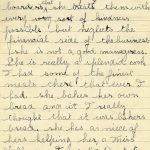 boarders, she treats them with
every sort of kindness
possible but neglects the
financial side of the business
she is not a good manageress.
She is really a splendid cook
I had some of the finest
meals there that ever I
she bakes her own
bread and it I really
thought that it was bakers
bread, she has a niece of
hers helping her a Miss